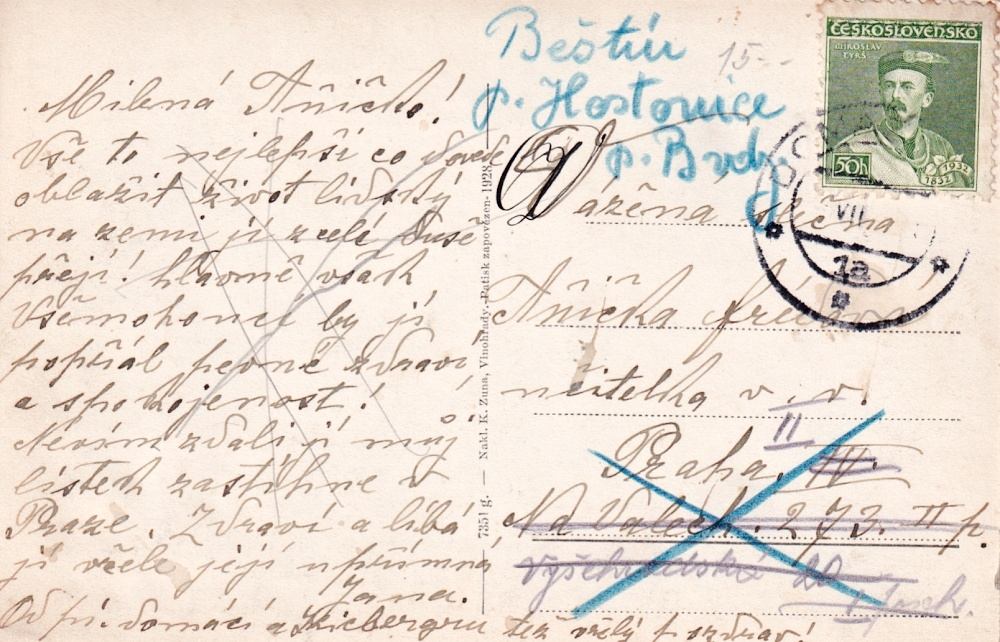 Milená Aničko!
Vše to nejlepší co dovede
oblažit život lidský
na zemi jí z celé duše
přeji! hlavně však
Všemohoucí by jí
popřál pevné zdraví
a spokojenost!
Nevím zdali jí můj
lístek zastihne v
Praze. Zdraví a líbá
jí vřele její upřímná
Jana.
Od pí. domácí a též vřelý pozdrav!
735l g. — Nakl. K. Zuna, Vinohrady. Patisk zapovězen-1928
Beštín
p. Hostomice
p. Brdy
15--
Vážená slečna
Anička
učitelka v. v.
II
Praha, IV.
Na Valech. 273. II p.
Vyšehradská 20
ČESKOSLOVENSKO
MIROSLAV
TYRŠ
50h
1932
1832
VII
1a